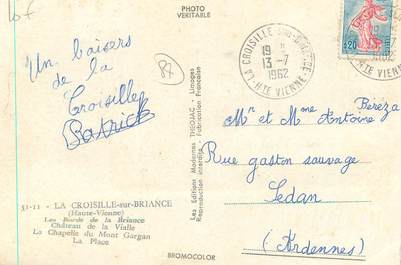 10f
PHOTO
VERITABLE
LA CROISILLE SUR BRIANCE
19 H
13-7
1962
HTE VIENNE
0,20
87
Un baisers
de la
Croisille
Patrick
Les Editions Modernes THEOJAC - Limoges
Reproduction interdite Fabrication Française
Mr et Mme Antoine Pereza
Rue gaston sauvage
Sedan
(Ardennes)
51-12 - LA CROISILLE-sur-BRIANCE
(Haute-Vienne)
Les Bords de la Briance
Château de la Vialle
La Chapelle du Mont Gargan
La Place
BROMOCOLOR